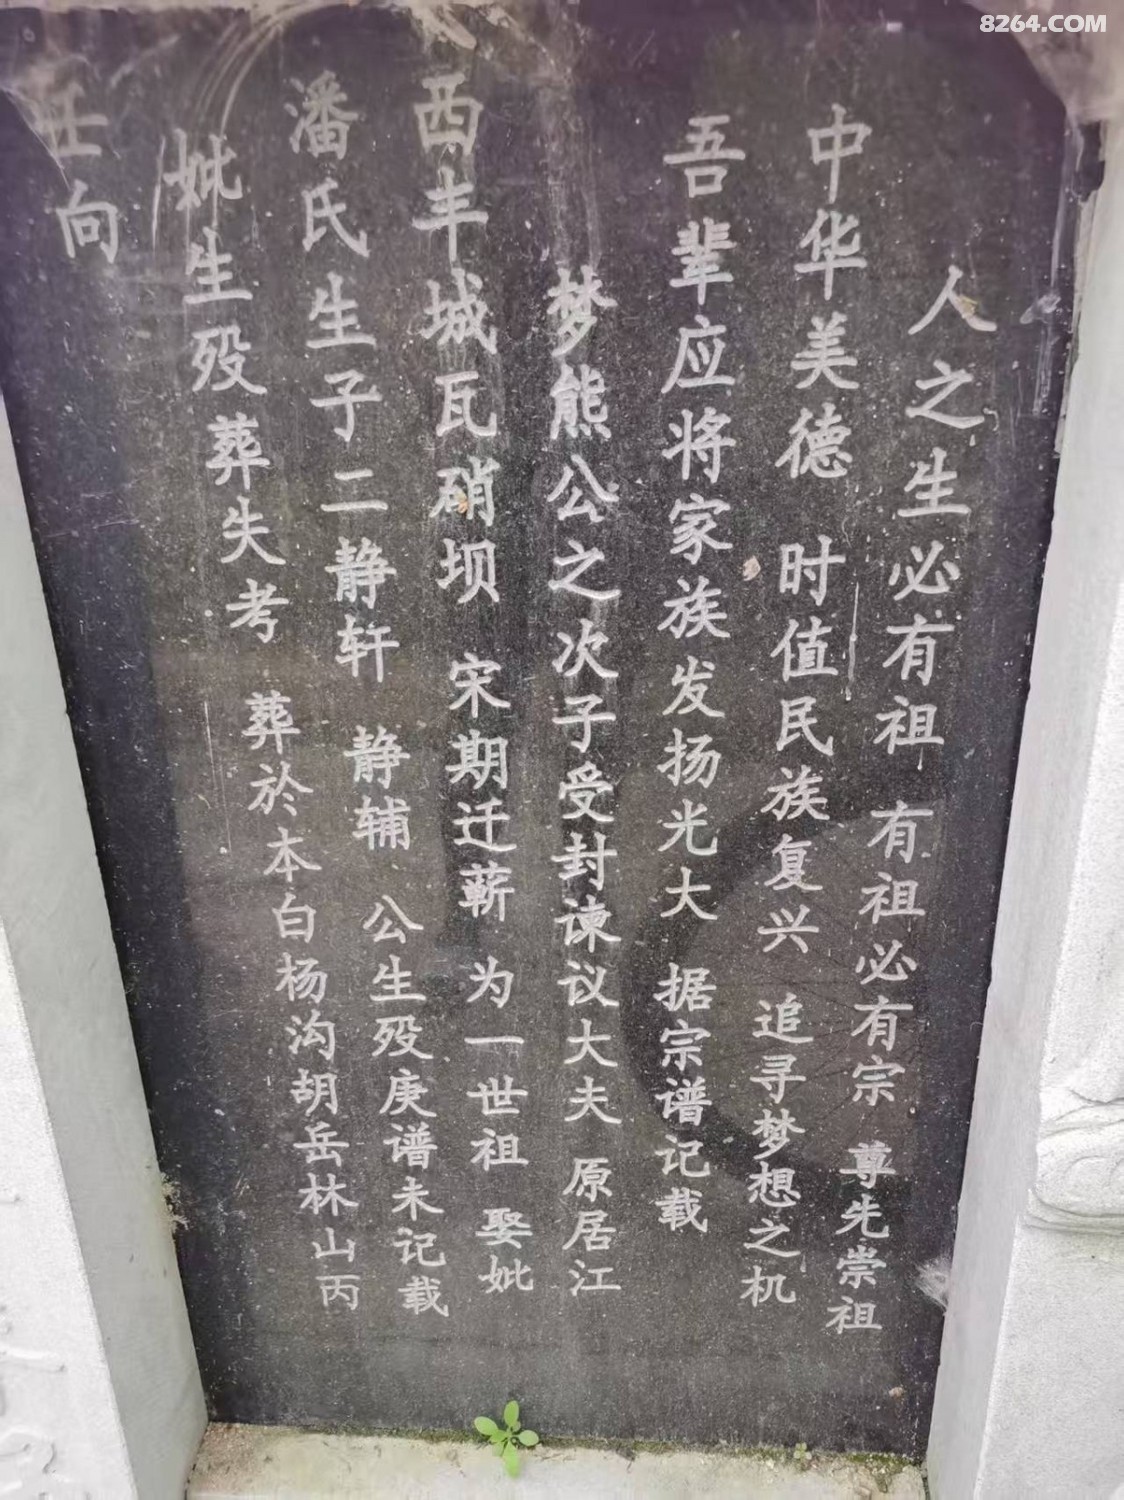 8264.COM
人之生必有祖 有祖必有宗 尊先崇祖
中华美德 时值民族复兴 追寻梦想之机
吾辈应将家族发扬光大 据宗谱记载
梦熊公之次子受封谏议大夫 原居江
西丰城瓦硝坝 宋期迁蕲为一世祖 娶妣
潘氏生子二静轩 静辅 公生殁庚谱未记载
妣生殁葬失考 葬於本白杨沟胡岳林山丙
壬向